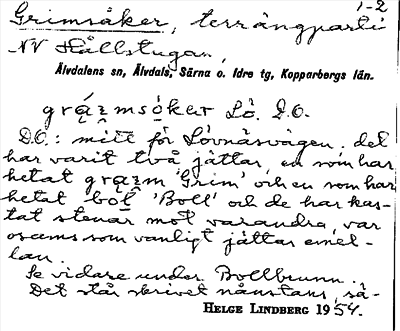 1-2
Grimsåker, terrängparti
NV Hållstugan,
Älvdalens sn, Älvdals, Särna o. Idre tg, Kopparbergs län.
Lö. D.O.
D.O.: mitt för Lövnäsvägen, det
har varit två jättar, en som har
hetat 'Grim' och en som har
hetat 'Boll' och de har kas-
tat stenar mot varandra, var
osams som vanligt jättar emel-
lan.
Se vidare under Bollbrunn.
Det står skrivet nånstans, så-
HELGE LINDBERG 1954.